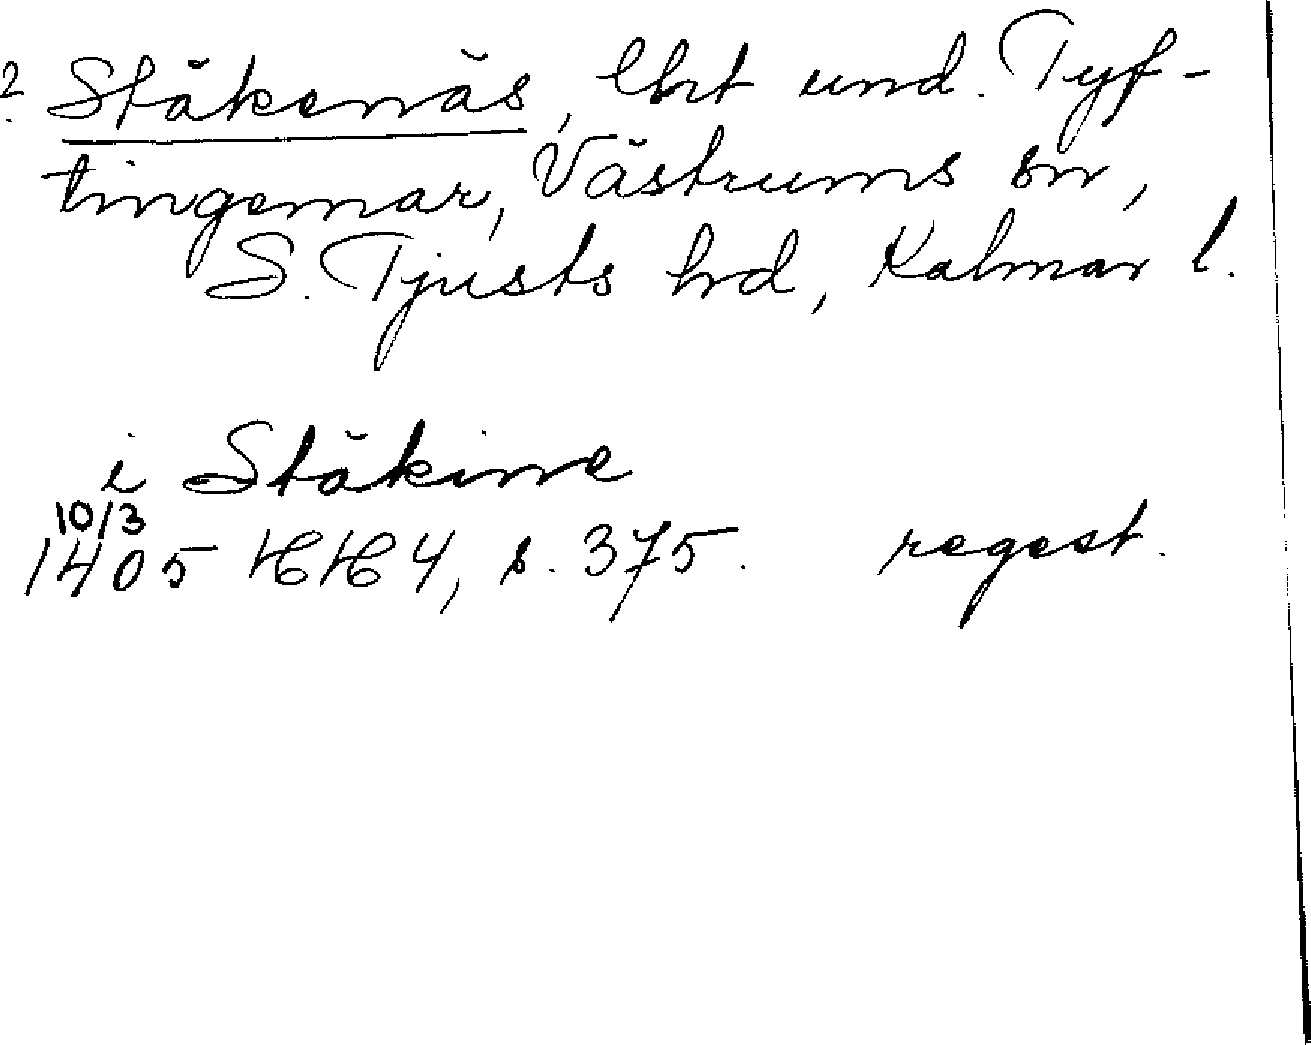 ? Stäkenäs, lht und. Tyf-
tingemar, Västrums sn,
S. Tjusts hd, Kalmar l.
i Stäkinne
10/3
1405 HH 4, s. 375. regest.